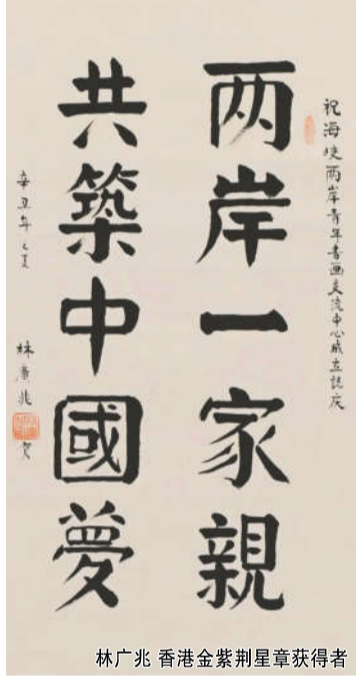 祝海峡两岸青年书画交流中心成立誌庆
两岸一家親
共築中國夢
辛丑年之夏
林广兆
贺
林广兆 香港金紫荆星章获得者